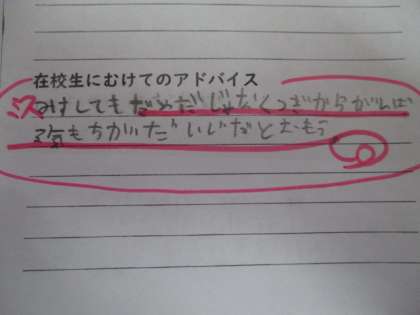 在校生にむけてのアドバイス
ミスしてもだめだじゃなくつぎからがんば
る気もちがだいじだとおもう。